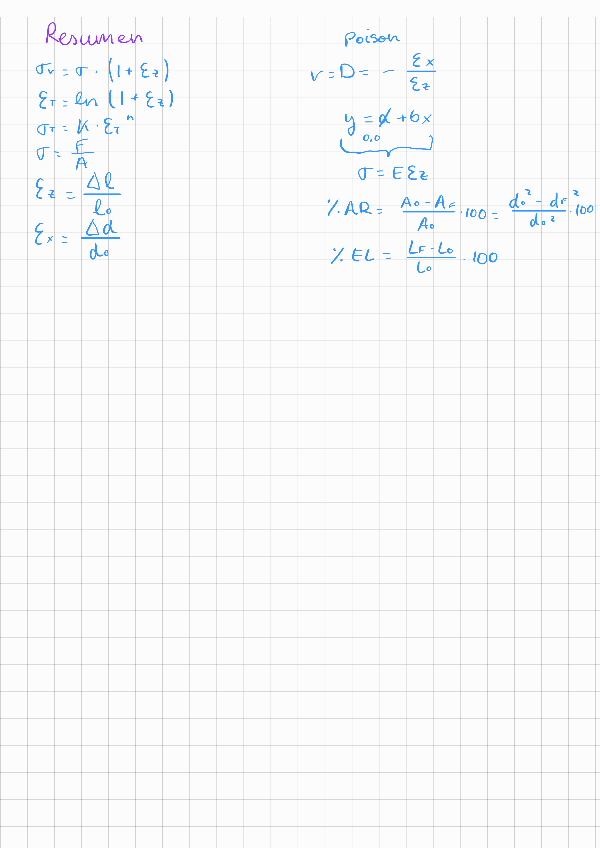 Resumen
σv = σ · (1 + εz)
ετ = ln (1 + εz)
στ = K · ετ^n
σ = F/A
εz = Δl/l₀
εx = Δd/d₀
Poison
v = D = - εx/εz
y = a + bx
0,0
σ = E εz
% AR = (A₀ - AF)/A₀ · 100 = (d₀² - dF²)/d₀² · 100
% EL = (LF - L₀)/L₀ · 100